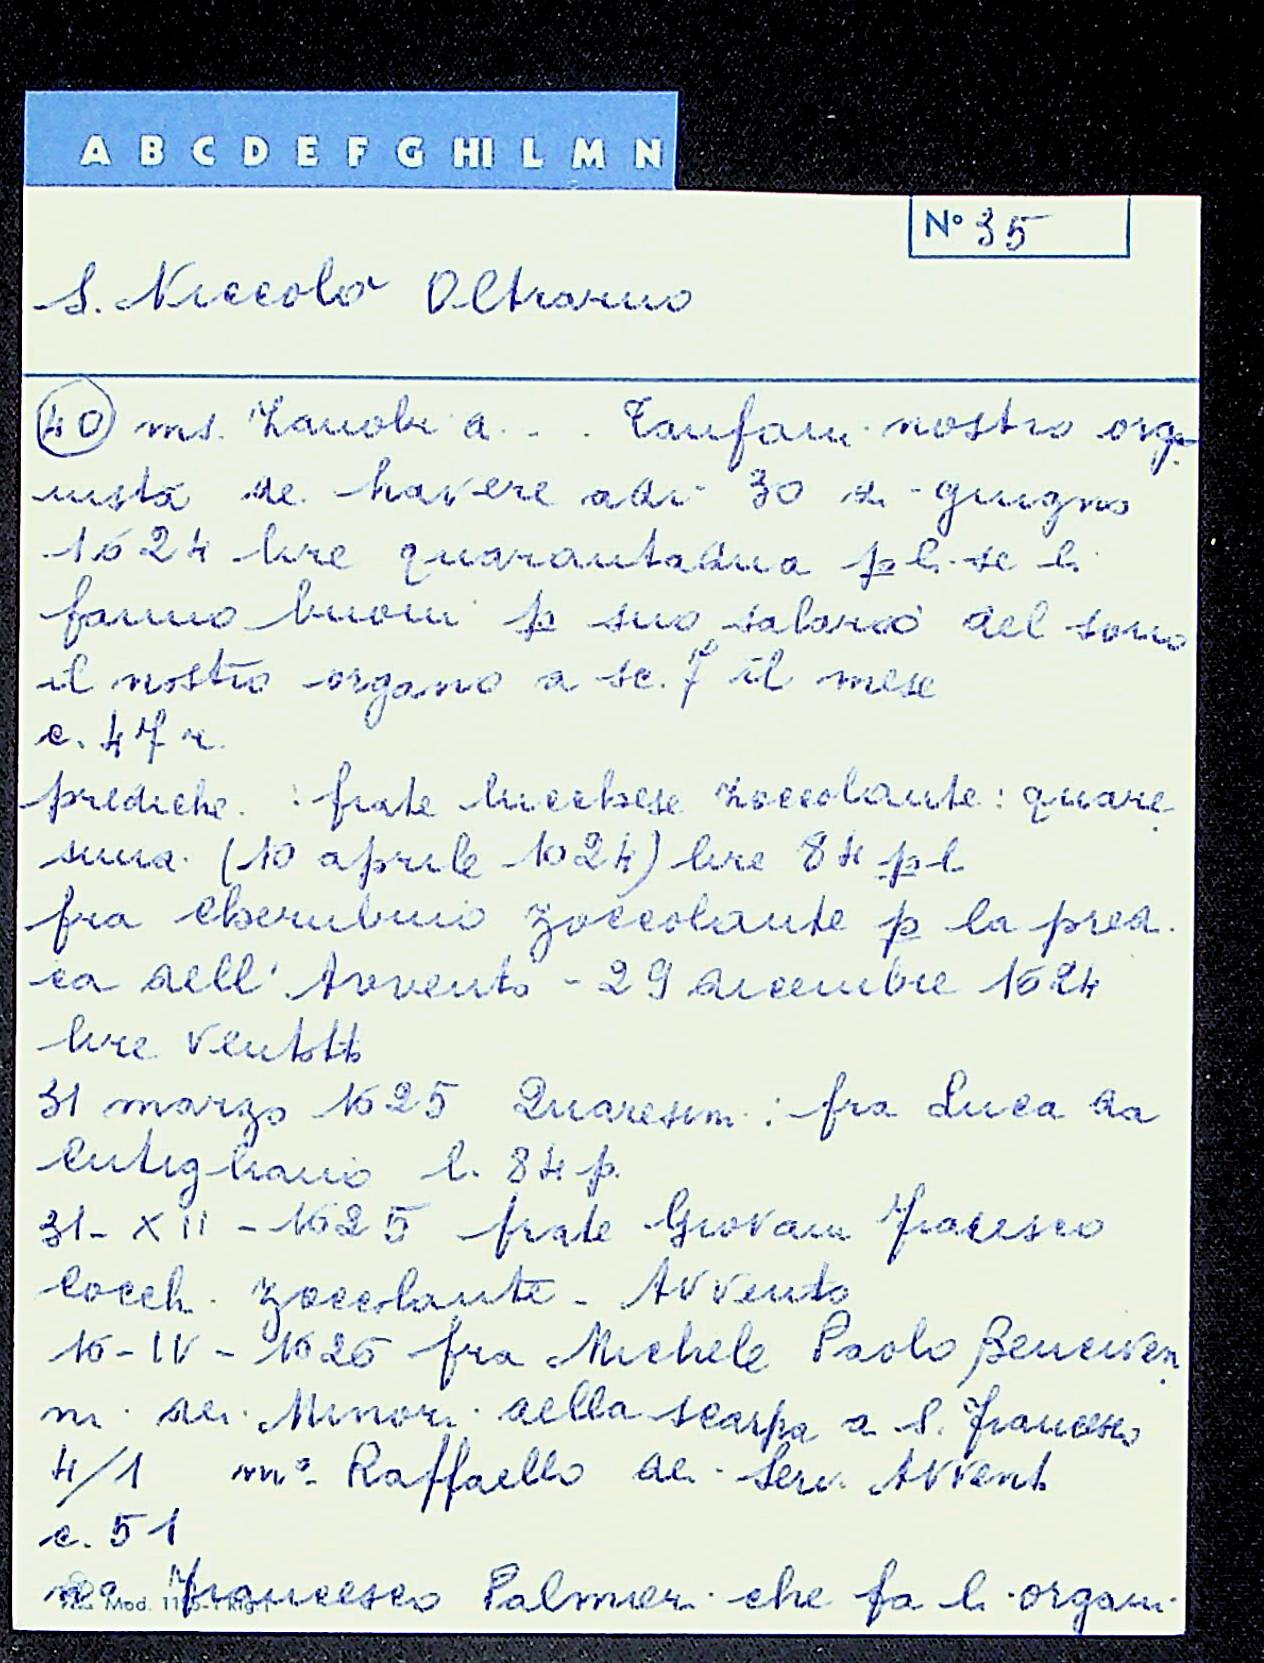 A B C D E F G HI L M N
N° 35
S. Niccolò Oltrarno
40 ms. Zanobi a . . . Tanfani nostro orga
nista de havere adi 30 di giugno
1624 lire quarantadua p li se li
fanno buoni p suo salario del sono
il nostro organo a sc. 7 il mese
c. 47 r.
prediche : frate lucchese zoccolante : quare
sima (10 aprile 1624) lire 84 p l
fra Cherubino zoccolante p la predi
ca dell' Avvento - 29 dicembre 1624
lire ventotto
31 marzo 1625 Quaresim : fra Luca da
Cutigliano l. 84 p.
31 - XII - 1625 frate Giovani Francesco
Cocchi zoccolante - Avvento
16 - IV - 1626 fra Michele Paolo Benciven
ni dei Minori della scarpa a S. Francesco
4/1 m° Raffaello de Servi Avvent
c. 51
Francesco Palmieri che fa li organi
Mod.